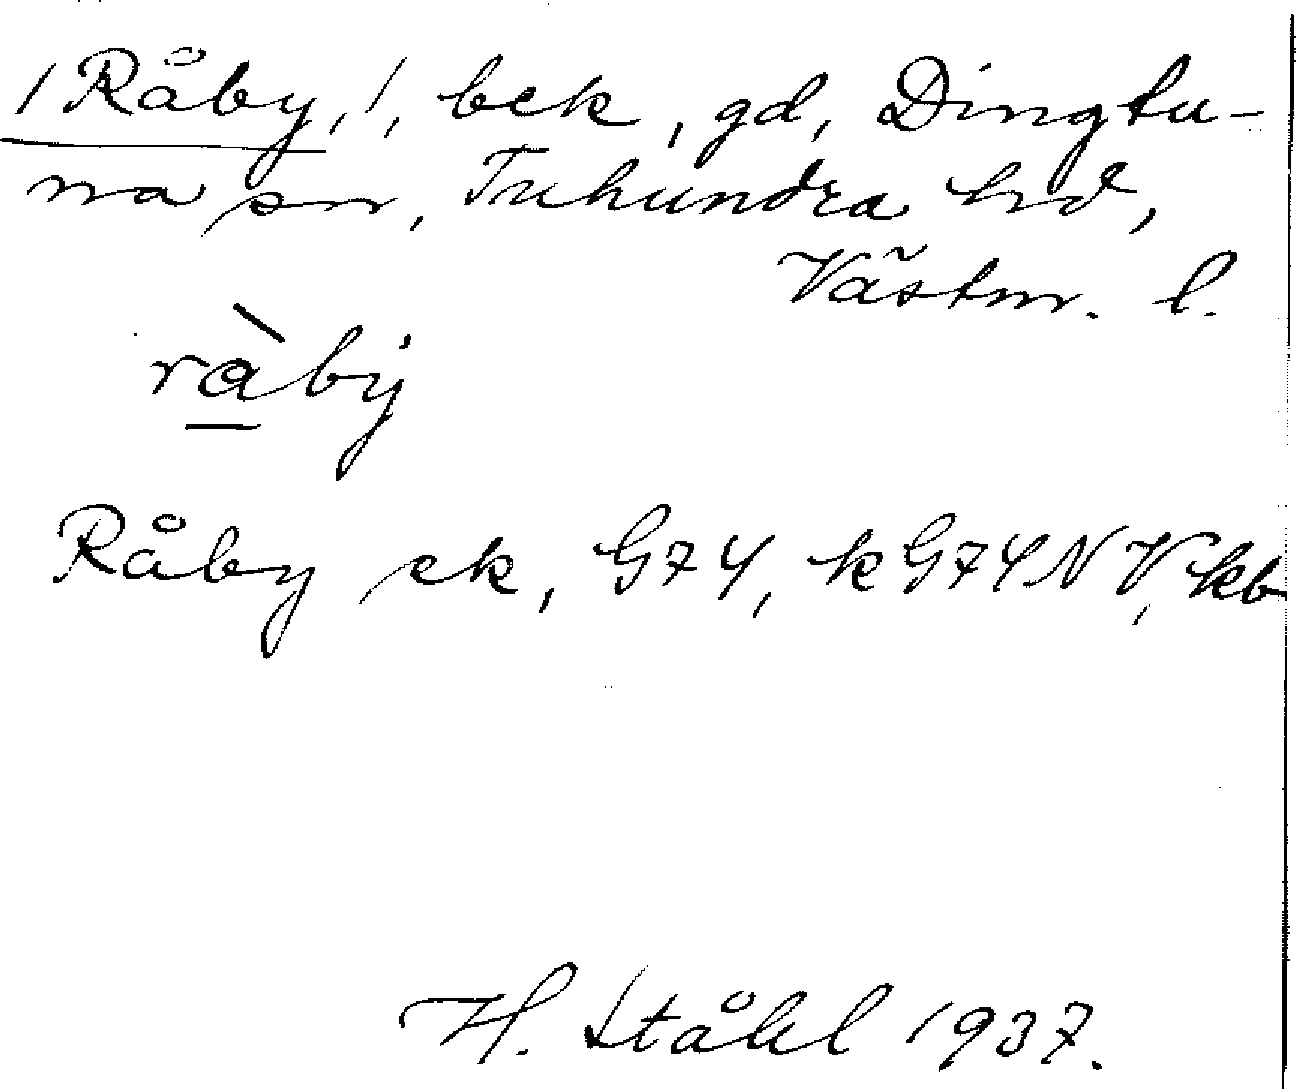 /Råby,/, bek, gd, Dingtu-
na sn, Tuhundra hd,
Västm. l.
ràby
Råby ek, G74, kG74NV, kb
H. Ståhl 1937.